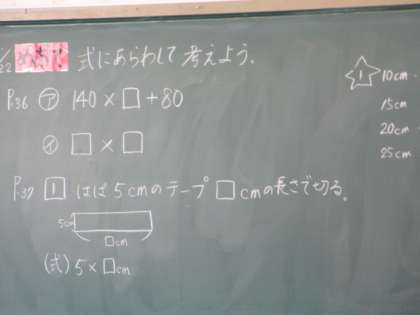 22 めあて 式にあらわして考えよう。
P.36 ㋐ 140×□+80
㋑ □×□
P.37 1 はば5cmのテープ□cmの長さで切る。
5cm
□cm
(式) 5×□cm
1 10cm
15cm
20cm
25cm